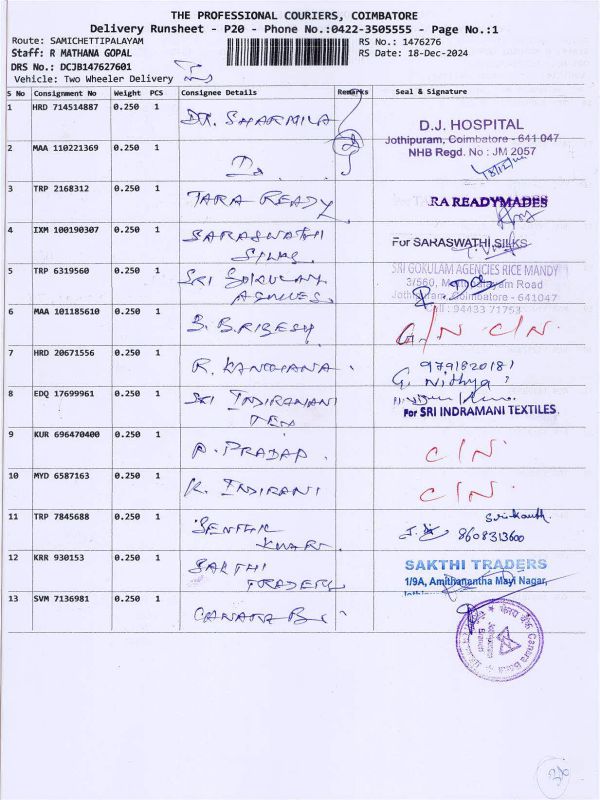 THE PROFESSIONAL COURIERS, COIMBATORE
Delivery Runsheet - P20 - Phone No.:0422-3505555 - Page No.:1
Route: SAMICHETTIPALAYAM RS No.: 1476276
Staff: R MATHANA GOPAL RS Date: 18-Dec-2024
DRS No.: DCJB147627601
Vehicle: Two Wheeler Delivery
S No Consignment No Weight PCS Consignee Details Remarks Seal & Signature
1 HRD 714514887 0.250 1 DR. SHARMILA
D.J. HOSPITAL
Jothipuram, Coimbatore - 641 047
NHB Regd. No : JM 2057
2 MAA 110221369 0.250 1
3 TRP 2168312 0.250 1 TARA READY RA READYMADES
4 IXM 100190307 0.250 1 SARASWATHI
SILKS For SARASWATHI SILKS
5 TRP 6319560 0.250 1 SRI GOKULAM
AGENCIES
SRI GOKULAM AGENCIES RICE MANDY
Coimbatore - 641047
Cell : 94433 71753
6 MAA 101185610 0.250 1 C/N
7 HRD 20671556 0.250 1 R. KANCHANA 9791820181
G. Nithya
8 EDQ 17699961 0.250 1 SRI INDIRANANI
TEX
For SRI INDRAMANI TEXTILES.
9 KUR 696470400 0.250 1 PRADAP C/N
10 MYD 6587163 0.250 1 K. INDIRANI C/N
11 TRP 7845688 0.250 1 SENTHIL
KUMAR Srikanth
8608313600
12 KRR 930153 0.250 1 SAKTHI
TRADERS
SAKTHI TRADERS
1/9A, Amithanantha Mayi Nagar,
13 SVM 7136981 0.250 1 CANARA B
Canara Bank